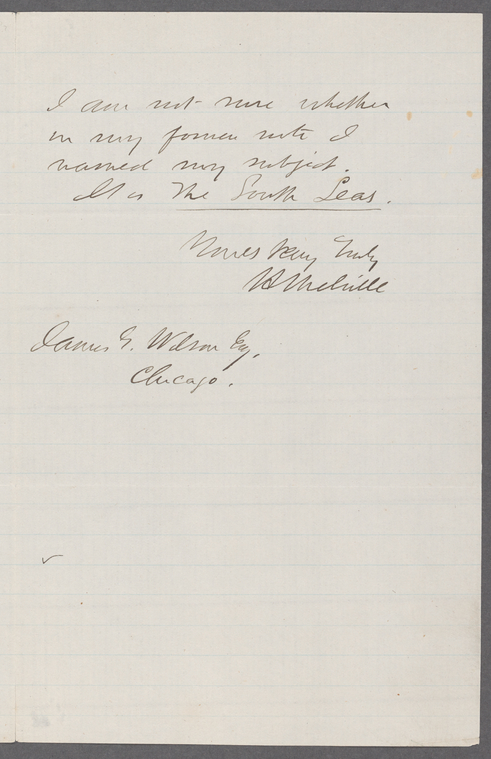 I am not sure whether
in my former note I
named my subject.
It is The South Seas.
Yours Very Truly
H Melville
James G. Wilson Esq.
Chicago.